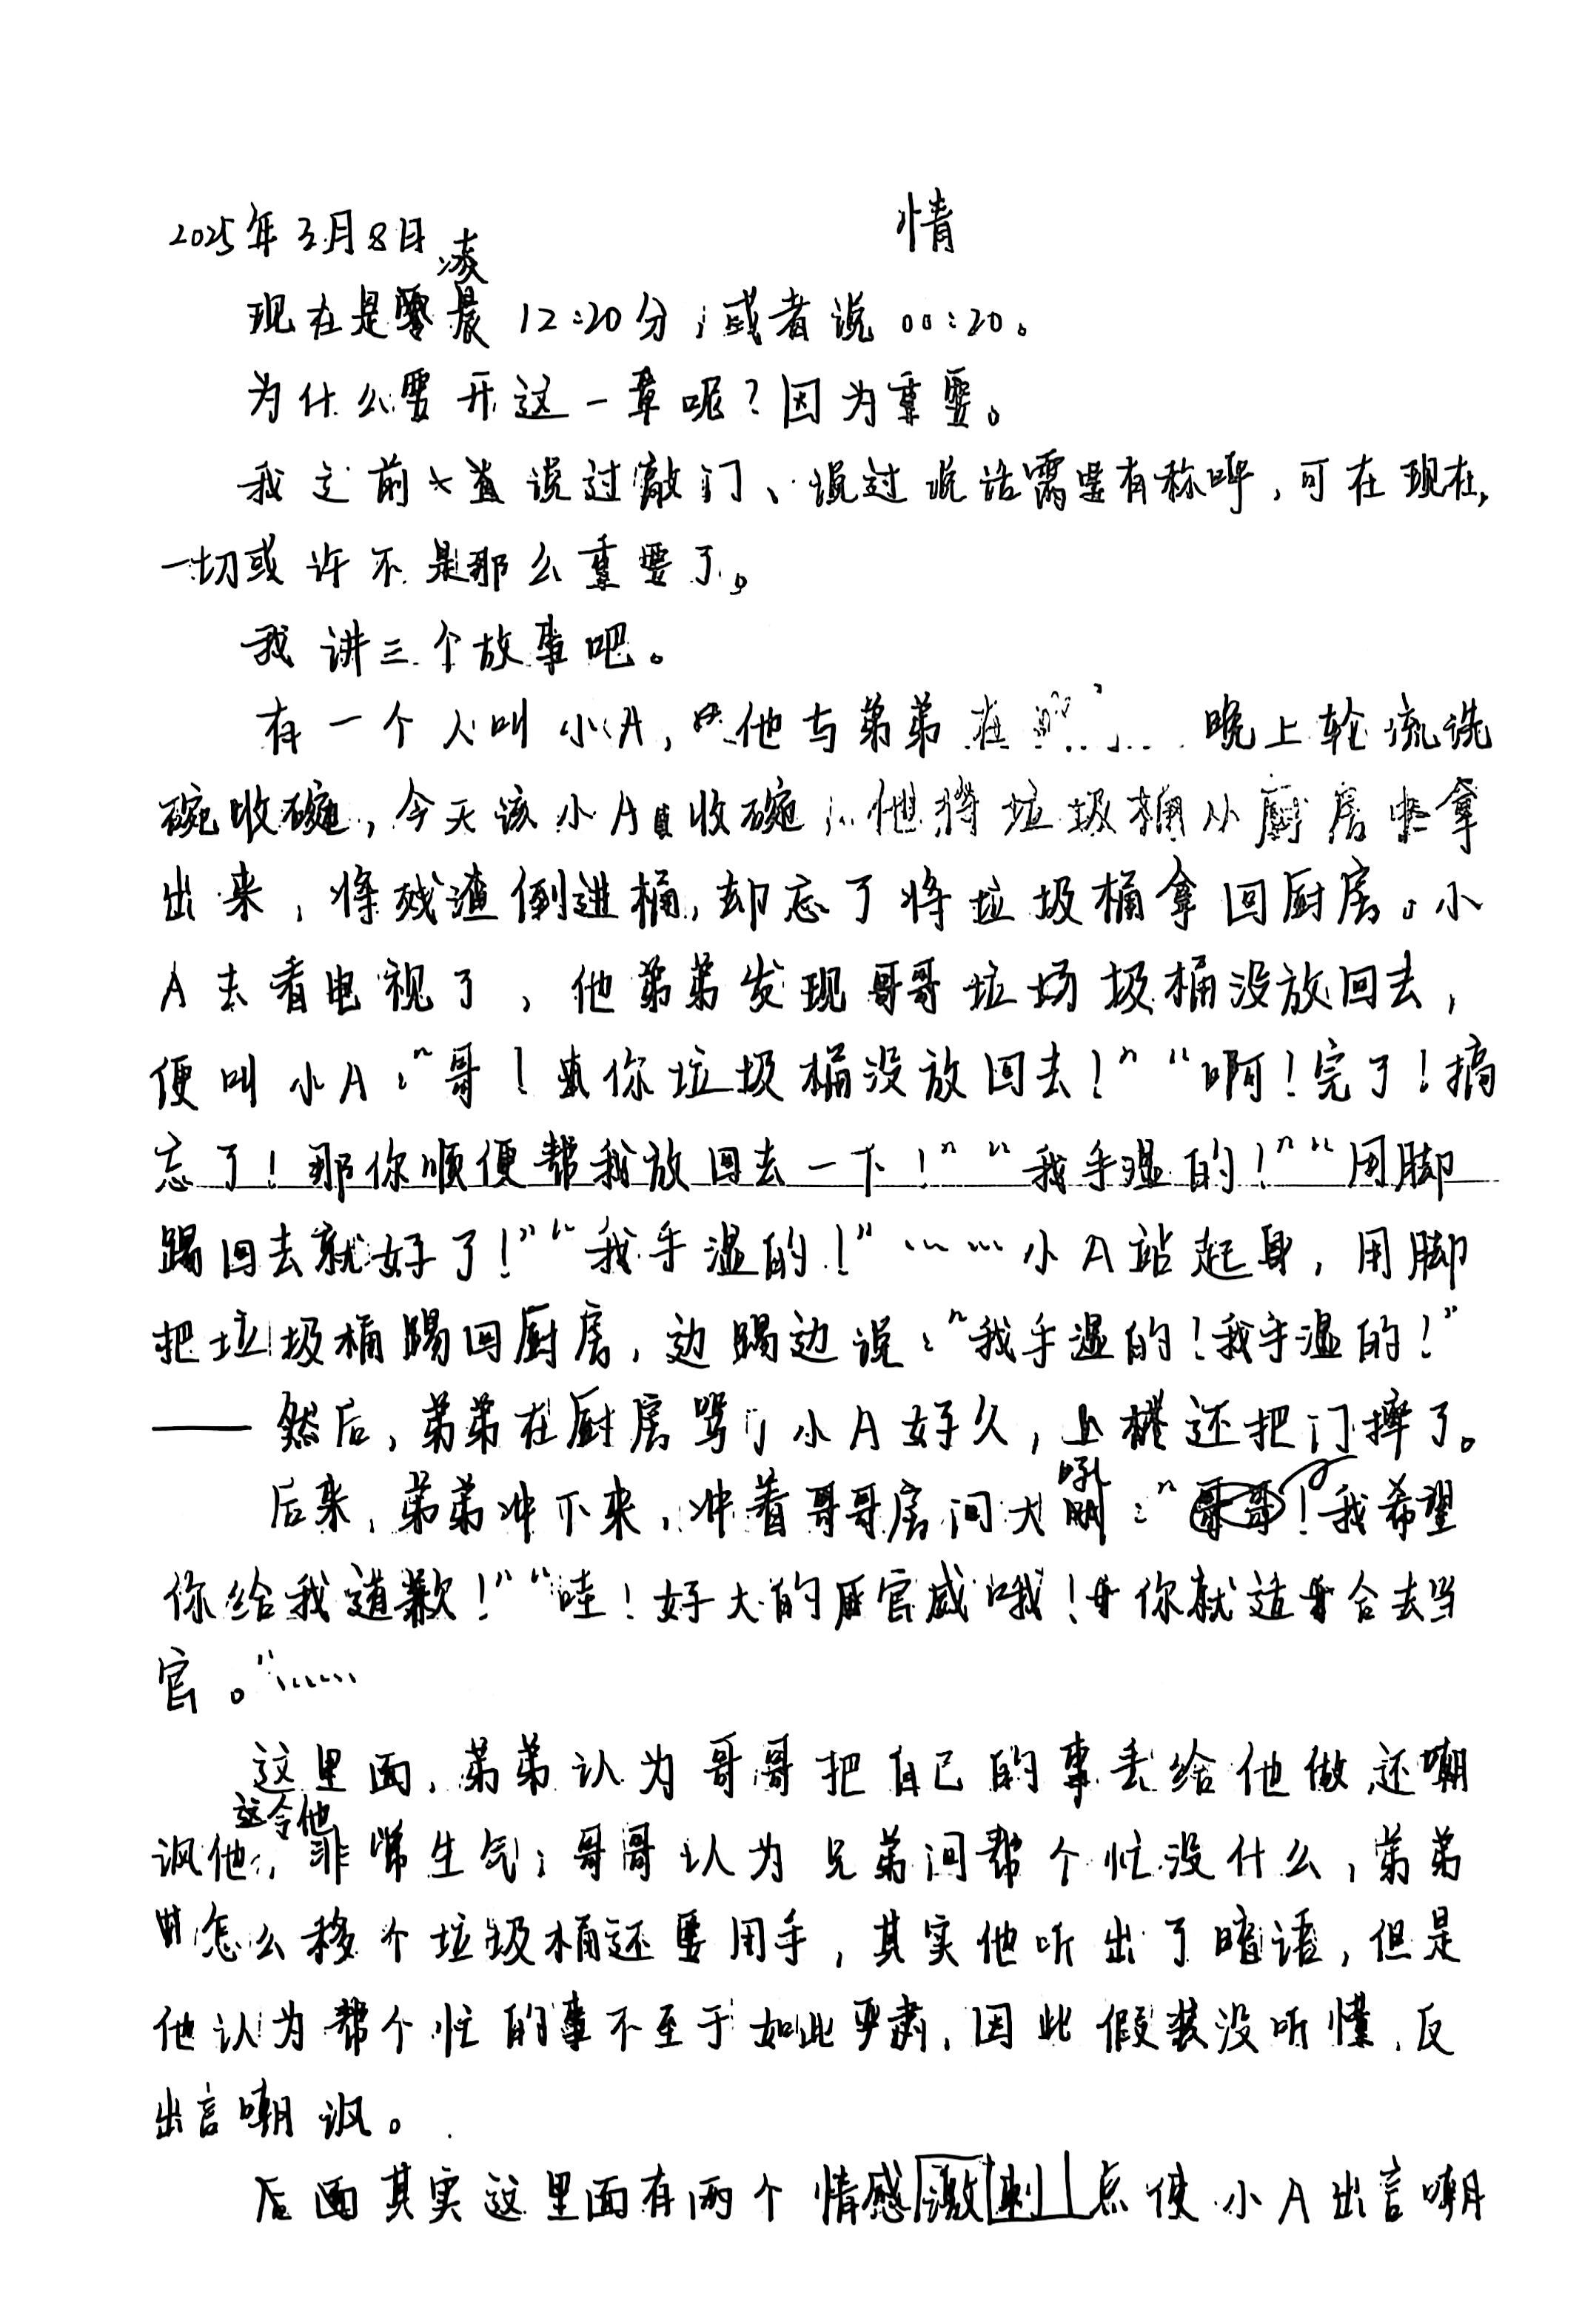 2025年3月8日 情
现在是凌晨12:20分，或者说00:20。
为什么要开这一章呢？因为重要。
我之前说过敲门、说过说话需要有称呼，可在现在，
一切或许不是那么重要了。
我讲三个故事吧。
有一个人叫小A，他与弟弟在 晚上轮流洗
碗收碗，今天该小A收碗，他将垃圾桶从厨房中拿
出来，将残渣倒进桶，却忘了将垃圾桶拿回厨房。小
A去看电视了，他弟弟发现哥哥垃圾桶没放回去，
便叫小A：“哥！你垃圾桶没放回去！”“啊！完了！搞
忘了！那你顺便帮我放回去一下！”“我手湿的！”“用脚
踢回去就好了！”“我手湿的！”……小A站起身，用脚
把垃圾桶踢回厨房，边踢边说：“我手湿的！我手湿的！”
——然后，弟弟在厨房骂了小A好久，上楼还把门摔了。
后来，弟弟冲下来，冲着哥哥房间大吼：“哥哥！我希望
你给我道歉！”“哇！好大的官威哦！你就适合去当
官。”……
这里面，弟弟认为哥哥把自己的事丢给他做还嘲
讽他，这令他非常生气；哥哥认为兄弟间帮个忙没什么，弟弟
怎么移个垃圾桶还要用手，其实他听出了暗语，但是
他认为帮个忙的事不至于如此严肃，因此假装没听懂，反
出言嘲讽。
后面其实这里面有两个情感激刺点使小A出言嘲